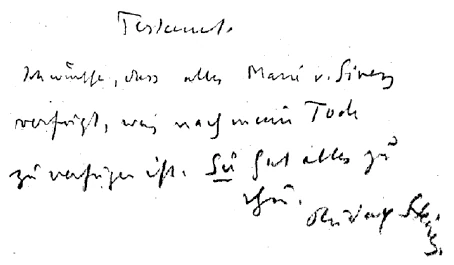 Testament.
Ich wünsche, dass alles Marie v. Sivers
verfügt, was nach meinem Tode
zu verfügen ist. Sie hat alles zu
thun.
Rudolf Steiner.